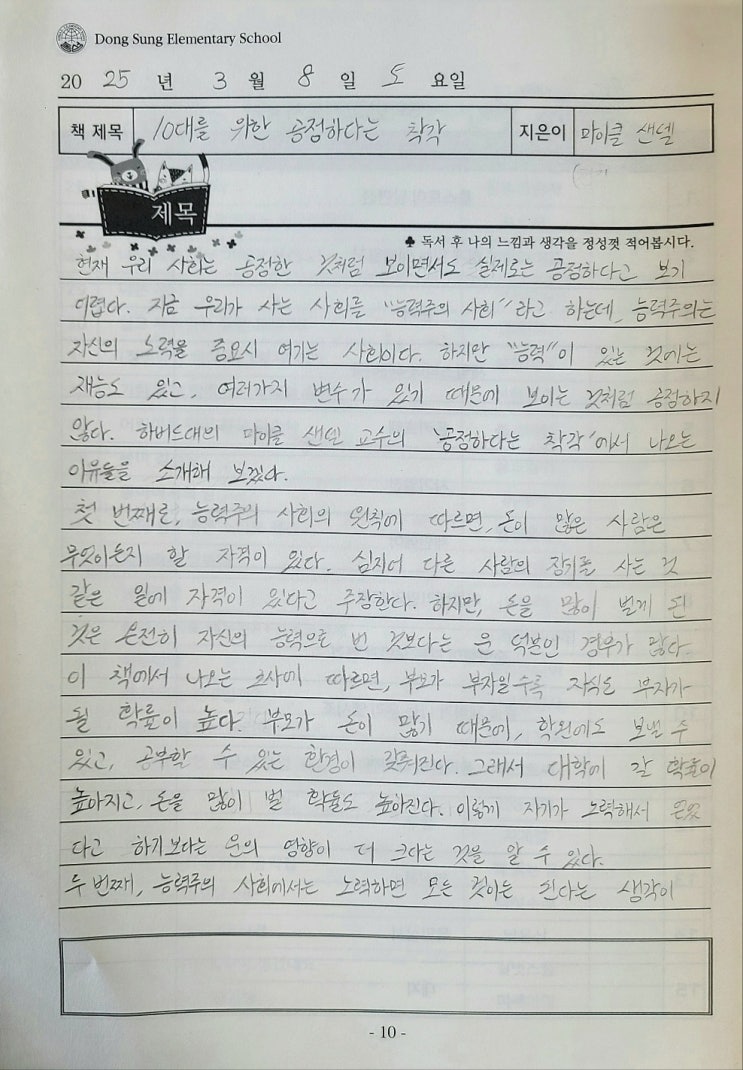 Dong Sung Elementary School
20 25 년 3 월 8 일 토 요일
책 제목 10대를 위한 공정하다는 착각 지은이 마이클 샌델
제목
♣ 독서 후 나의 느낌과 생각을 정성껏 적어봅시다.
현재 우리 사회는 공정한 것처럼 보이면서도 실제로는 공정하다고 보기
어렵다. 지금 우리가 사는 사회를 "능력주의 사회"라고 하는데, 능력주의는
자신의 노력을 중요시 여기는 사회이다. 하지만 "능력"이 있는 것에는
재능도 있고, 여러가지 변수가 있기 때문에 보이는 것처럼 공정하지
않다. 하버드대의 마이클 샌델 교수의 '공정하다는 착각'에서 나오는
이유들을 소개해 보겠다.
첫 번째로, 능력주의 사회의 원칙에 따르면, 돈이 많은 사람은
무엇이든지 할 자격이 있다. 심지어 다른 사람의 장기를 사는 것
같은 일에 자격이 있다고 주장한다. 하지만, 돈을 많이 벌게 된
것은 온전히 자신의 능력으로 번 것보다는 운 덕분인 경우가 많다.
이 책에서 나오는 조사에 따르면, 부모가 부자일수록 자식도 부자가
될 확률이 높다. 부모가 돈이 많기 때문에, 학원에도 보낼 수
있고, 공부할 수 있는 환경이 갖춰진다. 그래서 대학에 갈 확률이
높아지고, 돈을 많이 벌 확률도 높아진다. 이렇게 자기가 노력해서
다고 하기보다는 운의 영향이 더 크다는 것을 알 수 있다.
두 번째, 능력주의 사회에서는 노력하면 모든 것이는 된다는 생각이
- 10 -